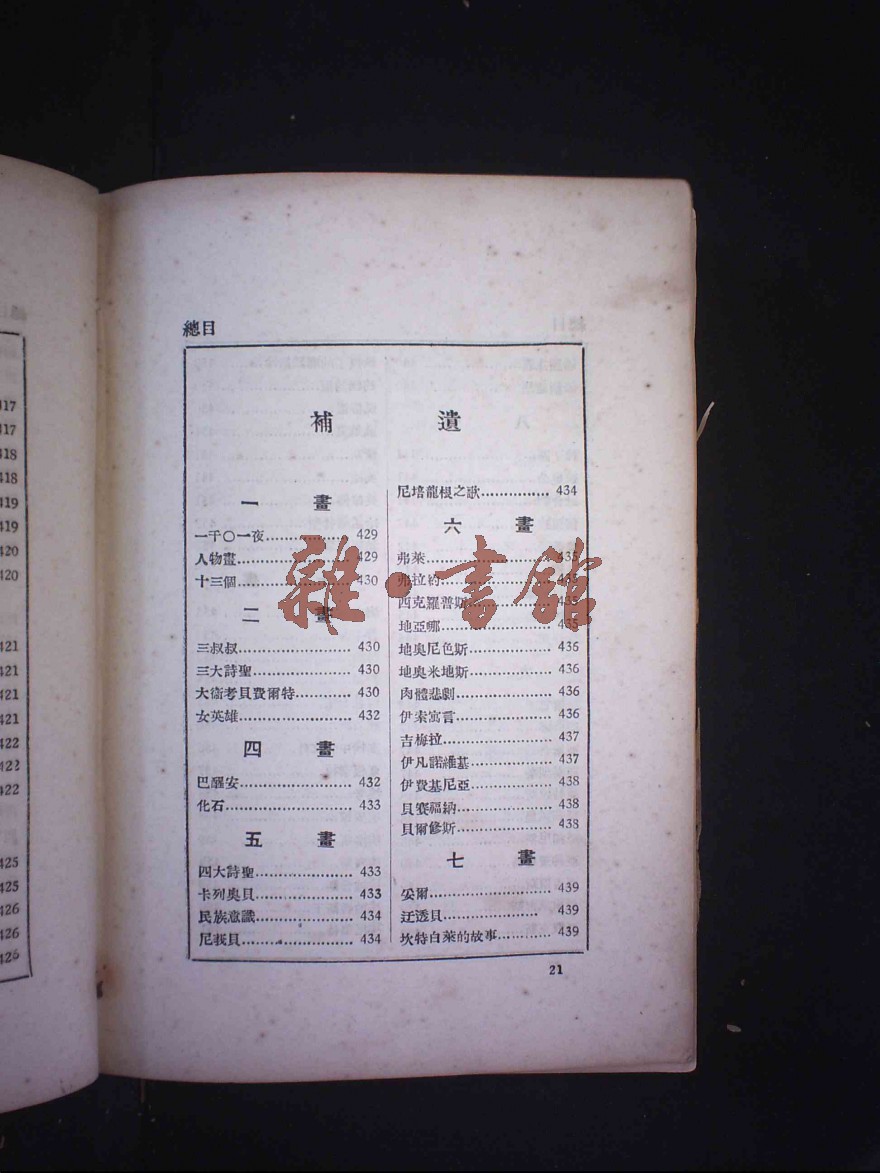 417
417
418
418
419
419
420
420
421
421
421
421
422
422
422
425
425
426
426
426
總目
補遺
一畫
一千〇一夜 429
人物畫 429
十三個 430
二畫
三叔叔 430
三大詩聖 430
大衛考貝費爾特 430
女英雄 432
四畫
巴醒安 432
化石 433
五畫
四大詩聖 433
卡列奧貝 433
民族意識 434
尼裴貝 434
尼培龍根之歌 434
六畫
弗萊 435
弗拉約 435
西克羅普斯 435
地亞娜 435
地奧尼色斯 436
地奧米地斯 436
肉體悲劇 436
伊索寓言 436
吉梅拉 437
伊凡諾維基 437
伊費基尼亞 438
貝賽福納 438
貝爾修斯 438
七畫
妥爾 439
迂透貝 439
坎特白萊的故事 439
21
雜·書館